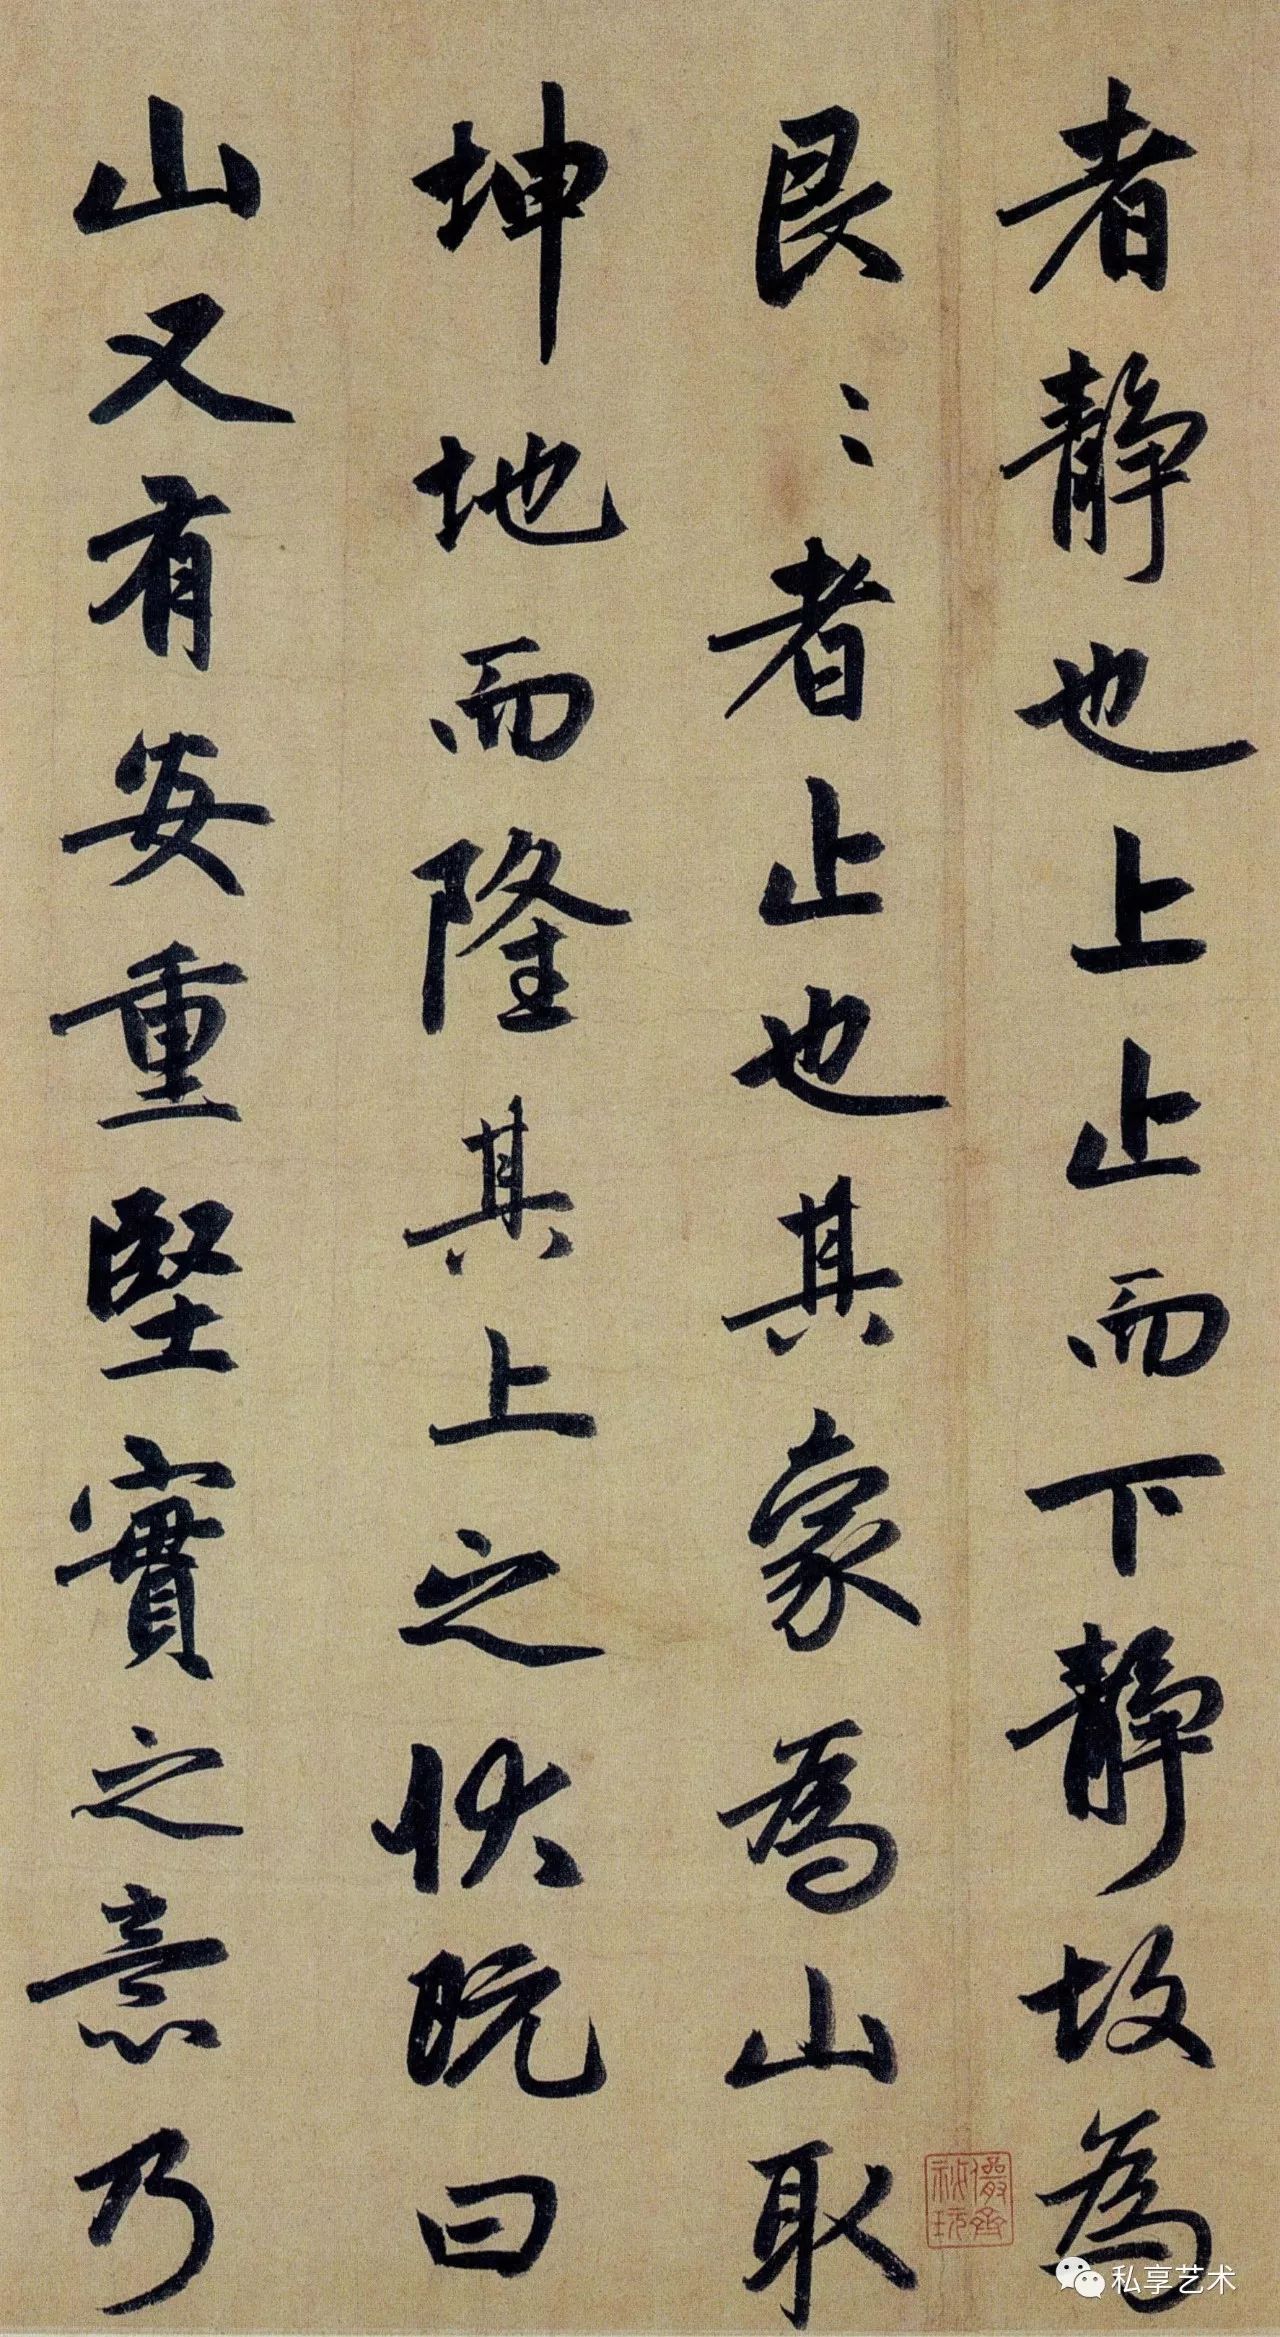 者靜也上止而下靜故為
艮〻者止也其象為山取
坤地而隆其上之狀既曰
山又有安重堅實之意乃
儼齋秘玩
私享艺术